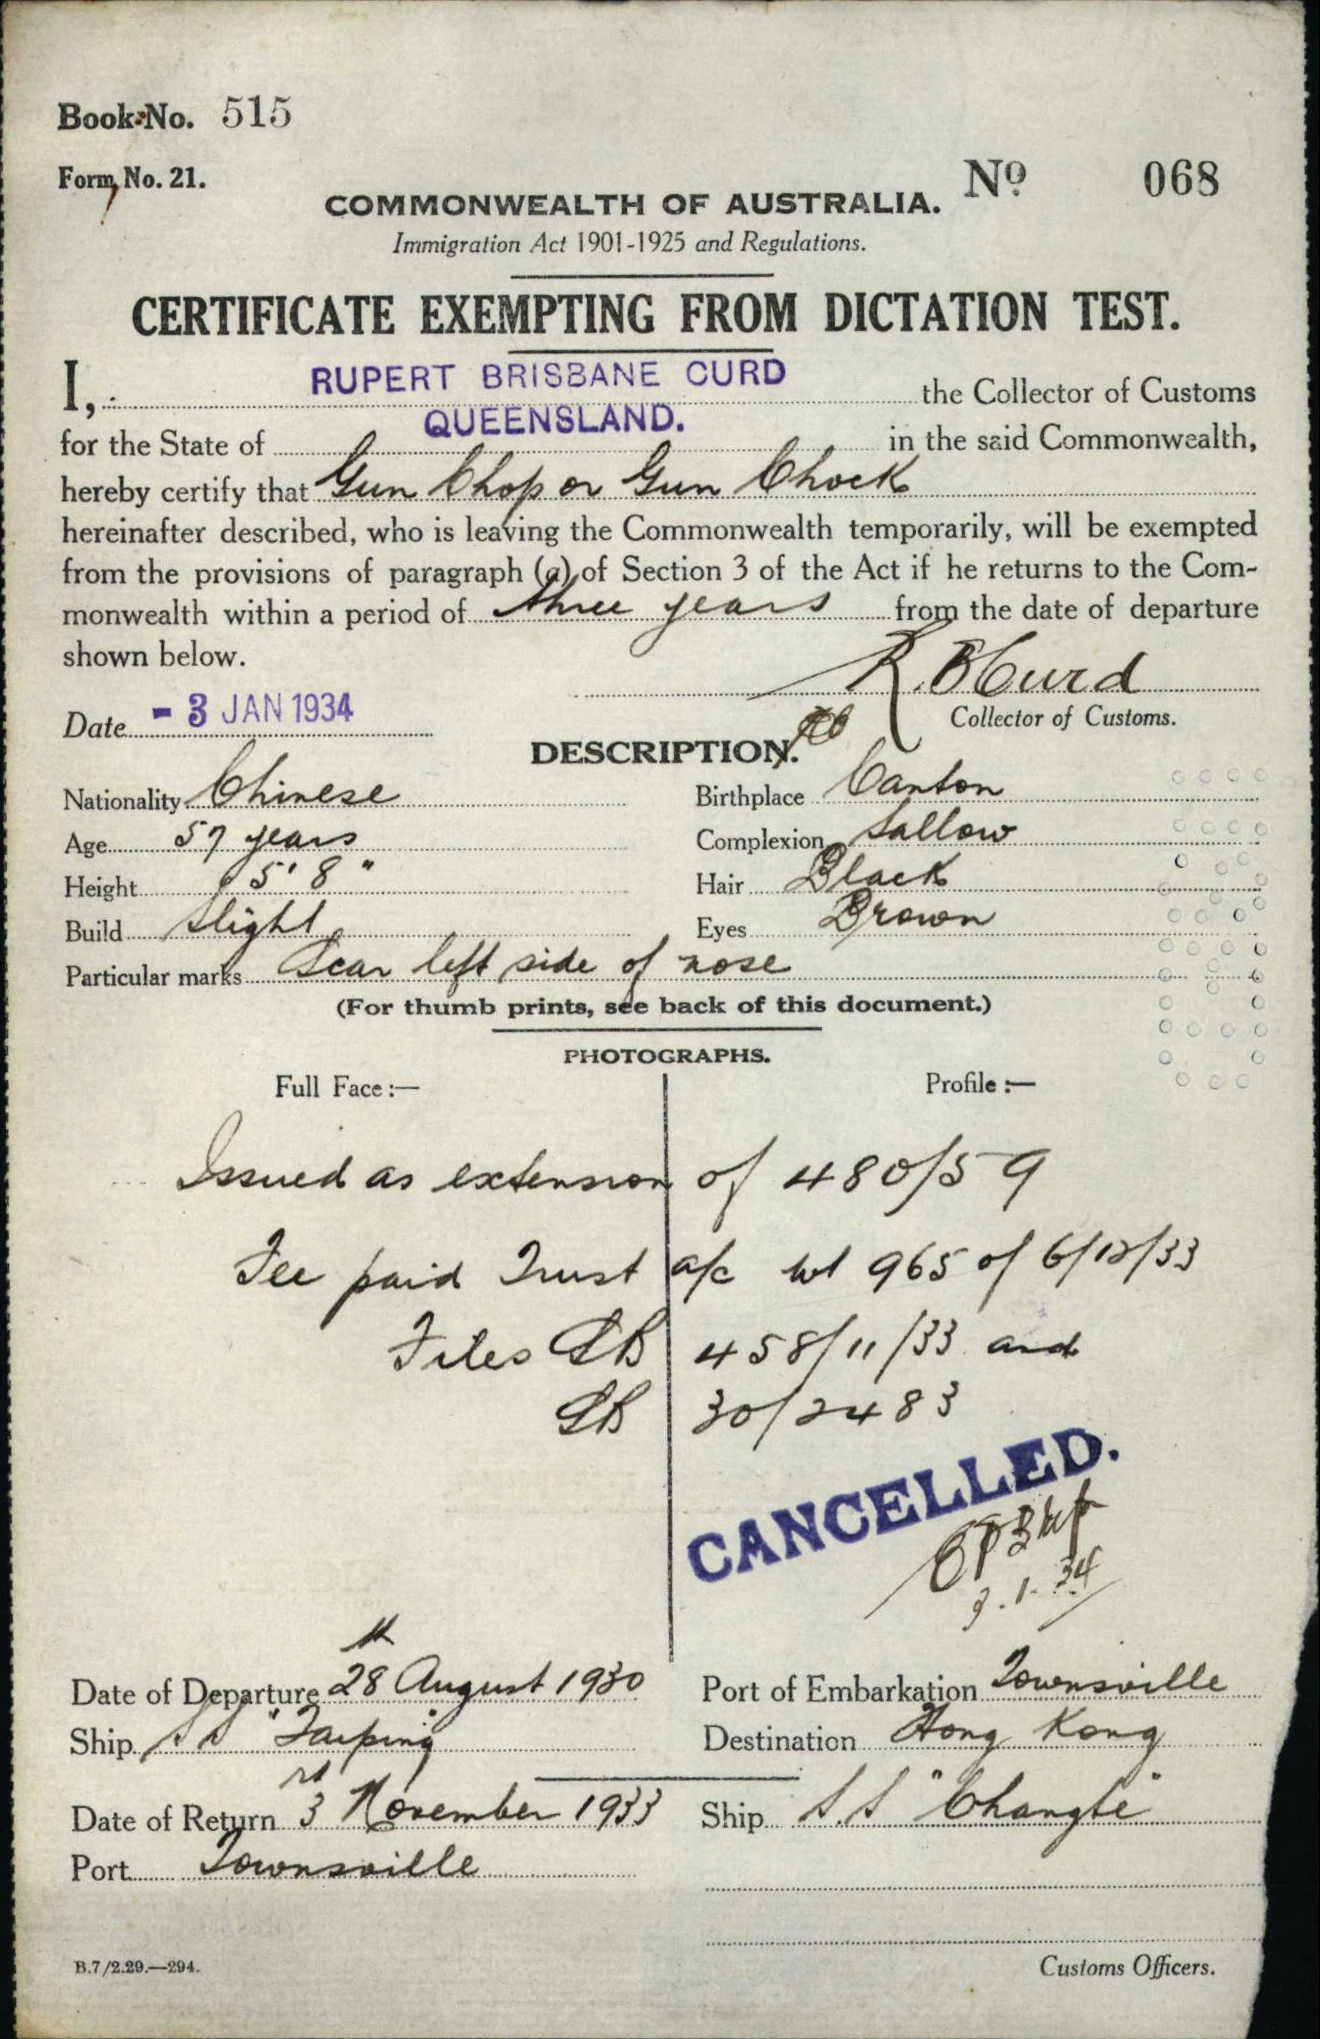 Book No. 515
Form No. 21.
Nº 068
COMMONWEALTH OF AUSTRALIA.
Immigration Act 1901-1925 and Regulations.
CERTIFICATE EXEMPTING FROM DICTATION TEST.
I, RUPERT BRISBANE CURD the Collector of Customs
for the State of QUEENSLAND. in the said Commonwealth,
hereby certify that Gun Chop or Gun Chock
hereinafter described, who is leaving the Commonwealth temporarily, will be exempted
from the provisions of paragraph (a) of Section 3 of the Act if he returns to the Com-
monwealth within a period of three years from the date of departure
shown below.
R. B Curd
Date - 3 JAN 1934
Collector of Customs.
DESCRIPTION.
Nationality Chinese Birthplace Canton
Age 57 years Complexion Sallow
Height 5' 8" Hair Black
Build Slight Eyes Brown
Particular marks Scar left side of nose
(For thumb prints, see back of this document.)
PHOTOGRAPHS.
Full Face :— Profile :—
Issued as extension of 480/59
Fee paid Trust a/c 965 of 6/12/33
Files 458/11/33 and
30/2483
CANCELLED.
3.1.34
Date of Departure 28th August 1930 Port of Embarkation Townsville
Ship SS "Taiping" Destination Hong Kong
Date of Return 3rd November 1933 Ship S.S "Changte"
Port Townsville
B.7/2.29.—294.
Customs Officers.